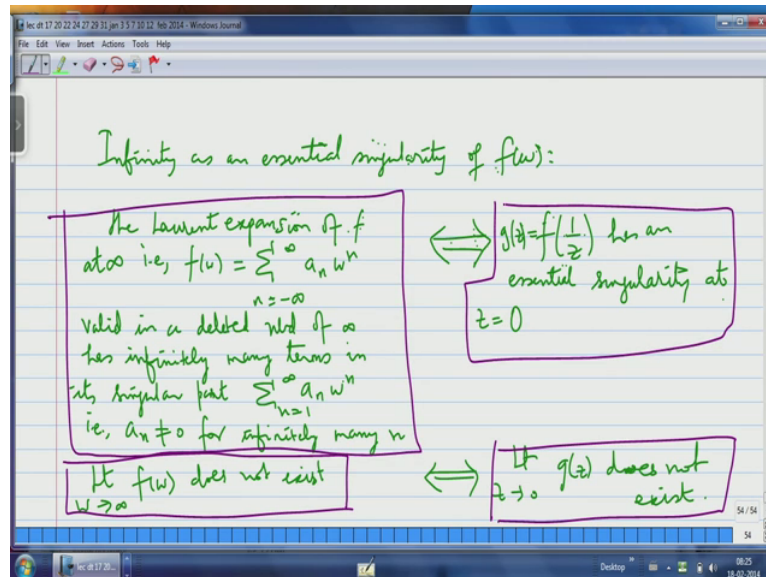 lec dt 17 20 22 24 27 29 31 jan 3 5 7 10 12 feb 2014 - Windows Journal
File Edit View Insert Actions Tools Help
Infinity as an essential singularity of f(w):
The Laurent expansion of f
at ∞ i.e, f(w) = ∑_{n=-∞}^{∞} a_n w^n
valid in a deleted nbd of ∞
has infinitely many terms in
its singular part ∑_{n=1}^{∞} a_n w^n
i.e, a_n ≠ 0 for infinitely many n
⟺
g(z) = f(1/z) has an
essential singularity at
z = 0
Lt_{w→∞} f(w) does not exist
⟺
Lt_{z→0} g(z) does not
exist.
54 / 54
54
lec dt 17 20...
Desktop
08:25
18-02-2014